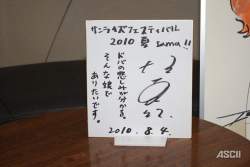 サンライズフェスティバル
2010 夏 sama!!
ドバの悲しみが分かる。
そんな娘で
ありたいです。
2010.8.4.
ASCII